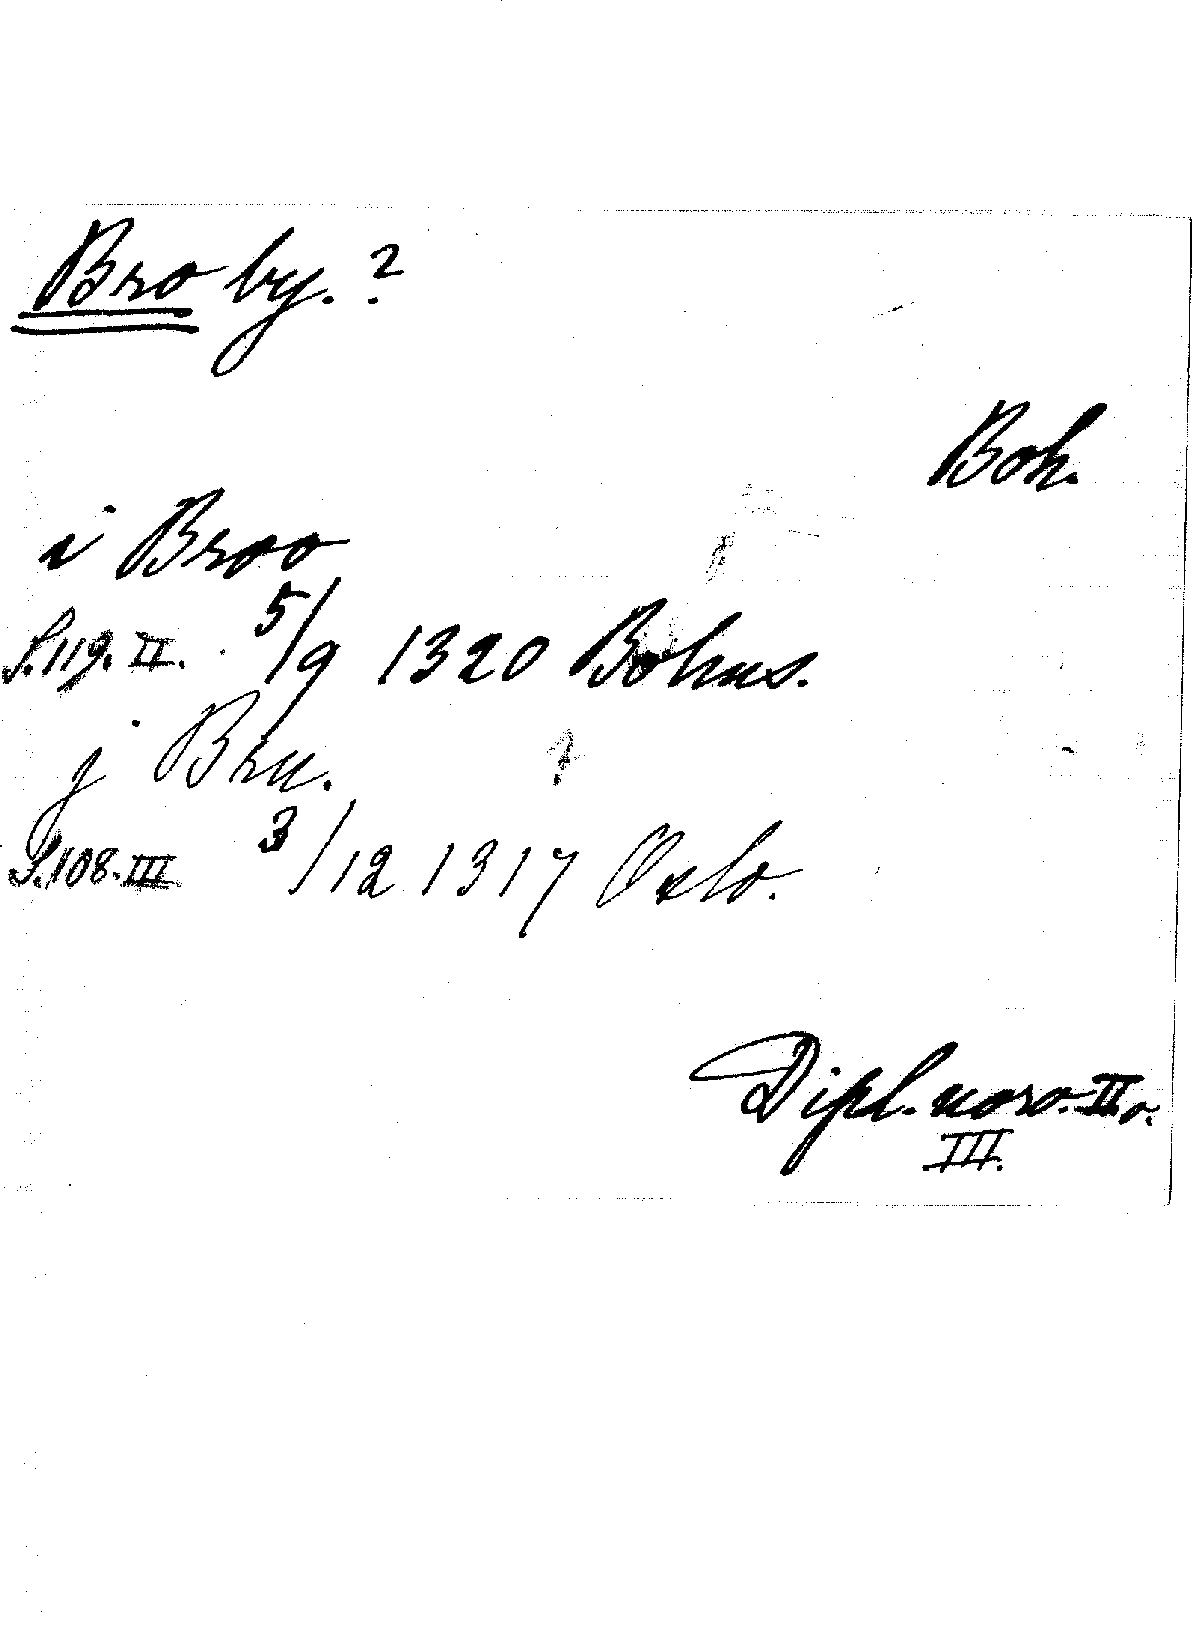 Bro by. ?
Boh.
i Broo
S. 119. II. 5/9 1320 Bohus.
j Bru.
S. 108. III 3/12 1317 Oslo.
Dipl. norv. II o.
III.